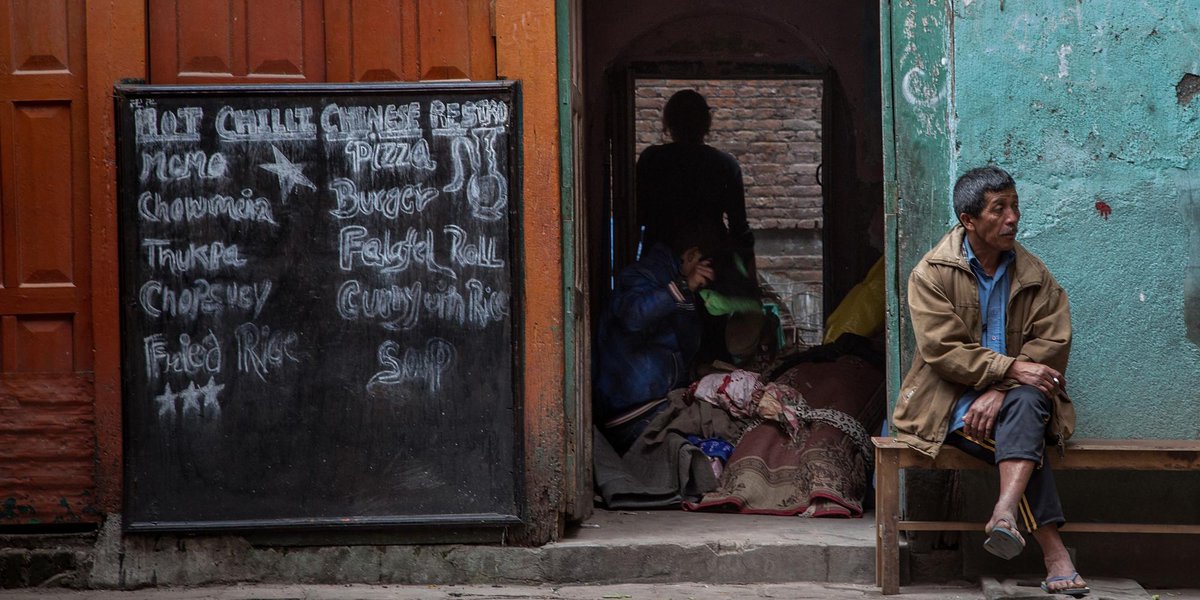 HOT CHILLI CHINESE RESTRO
MOMO
Chowmein
Thukpa
Chopsuey
Fried Rice
Pizza
Burger
Falafel Roll
Curry with Rice
Soup